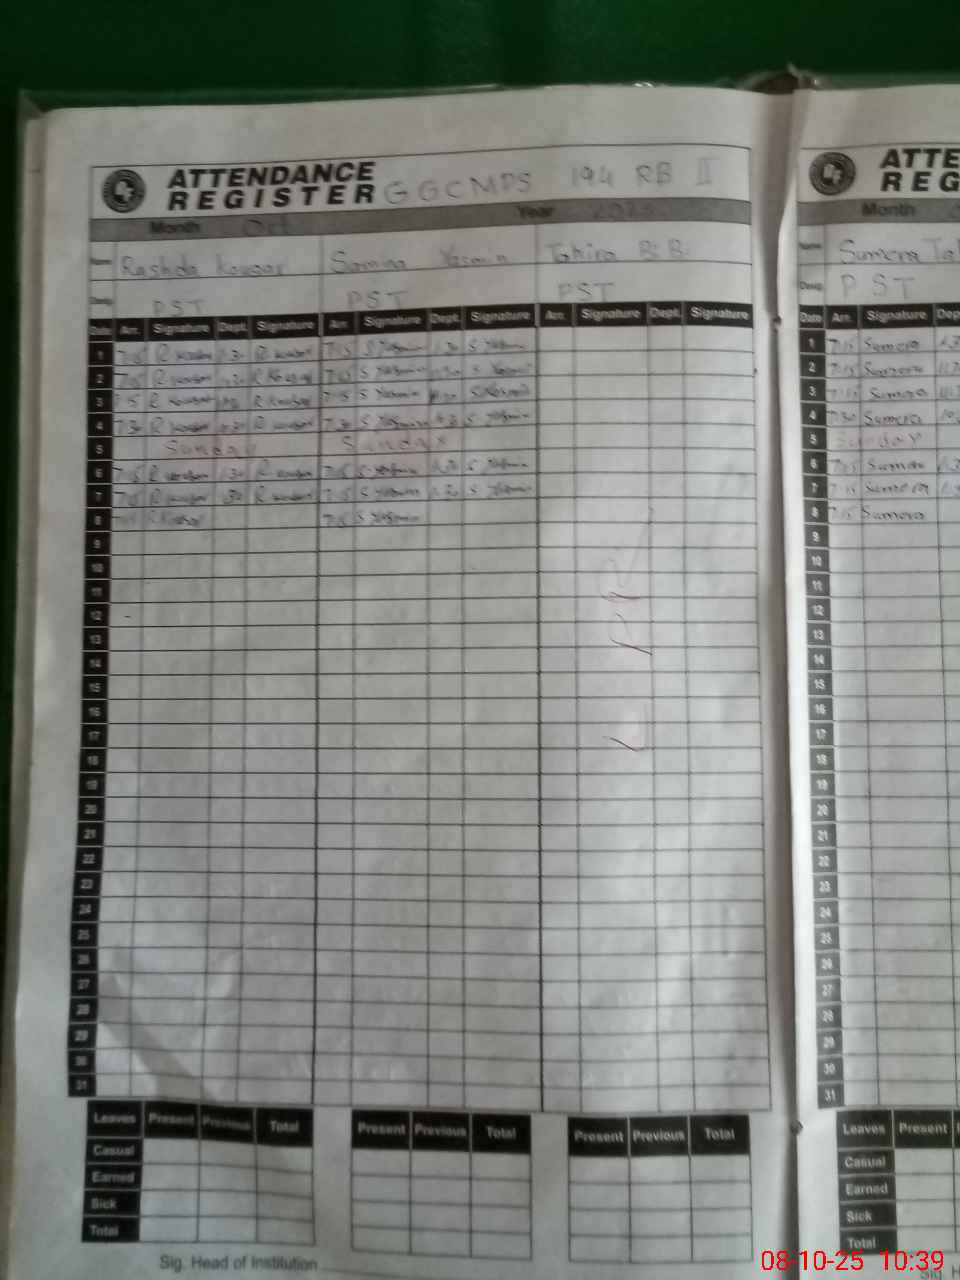 ATTENDANCE
REGISTER GGCMPS 194 RB II
Month Oct Year 2025
Name Rashda Kousar Samina Yasmin Tahira BiBi
Desig PST PST PST
Date Arr. Signature Dept. Signature Arr. Signature Dept. Signature Arr. Signature Dept. Signature
1 7:15 R kousar 1:30 R kousar 7:15 S Yasmin 1:30 S Yasmin
2 7:15 R kousar R Kousar 7:15 S Yasmin S Yasmin
3 7:15 R kousar R Kousar 7:15 S Yasmin S Yasmin
4 7:30 R kousar R kousar 7:30 S Yasmin S Yasmin
5 Sunday Sunday
6 7:15 R kousar 1:30 R kousar 7:15 S Yasmin 1:30 S Yasmin
7 7:15 R kousar 1:30 R kousar 7:15 S Yasmin 1:30 S Yasmin
8 7:15 R Kousar 7:15 S Yasmin
9
10
11
12 -
13
14
15
16
17
18
19
20
21
22
23
24
25
26
27
28
29
30
31
Leaves Present Previous Total Present Previous Total Present Previous Total
Casual
Earned
Sick
Total
Sig. Head of Institution
ATTE
REG
Month
Name Sumera
Desig PST
Date Arr. Signature Dep
1 7:15 Sumera
2 7:15 Sumera
3 7:15 Sumera
4 7:30 Sumera
5 Sunday
6 7:15 Sumera
7 7:15 Sumera
8 7:15 Sumera
9
10
11
12
13
14
15
16
17
18
19
20
21
22
23
24
25
26
27
28
29
30
31
Leaves Present
Casual
Earned
Sick
Total
Sig. H
08-10-25 10:39